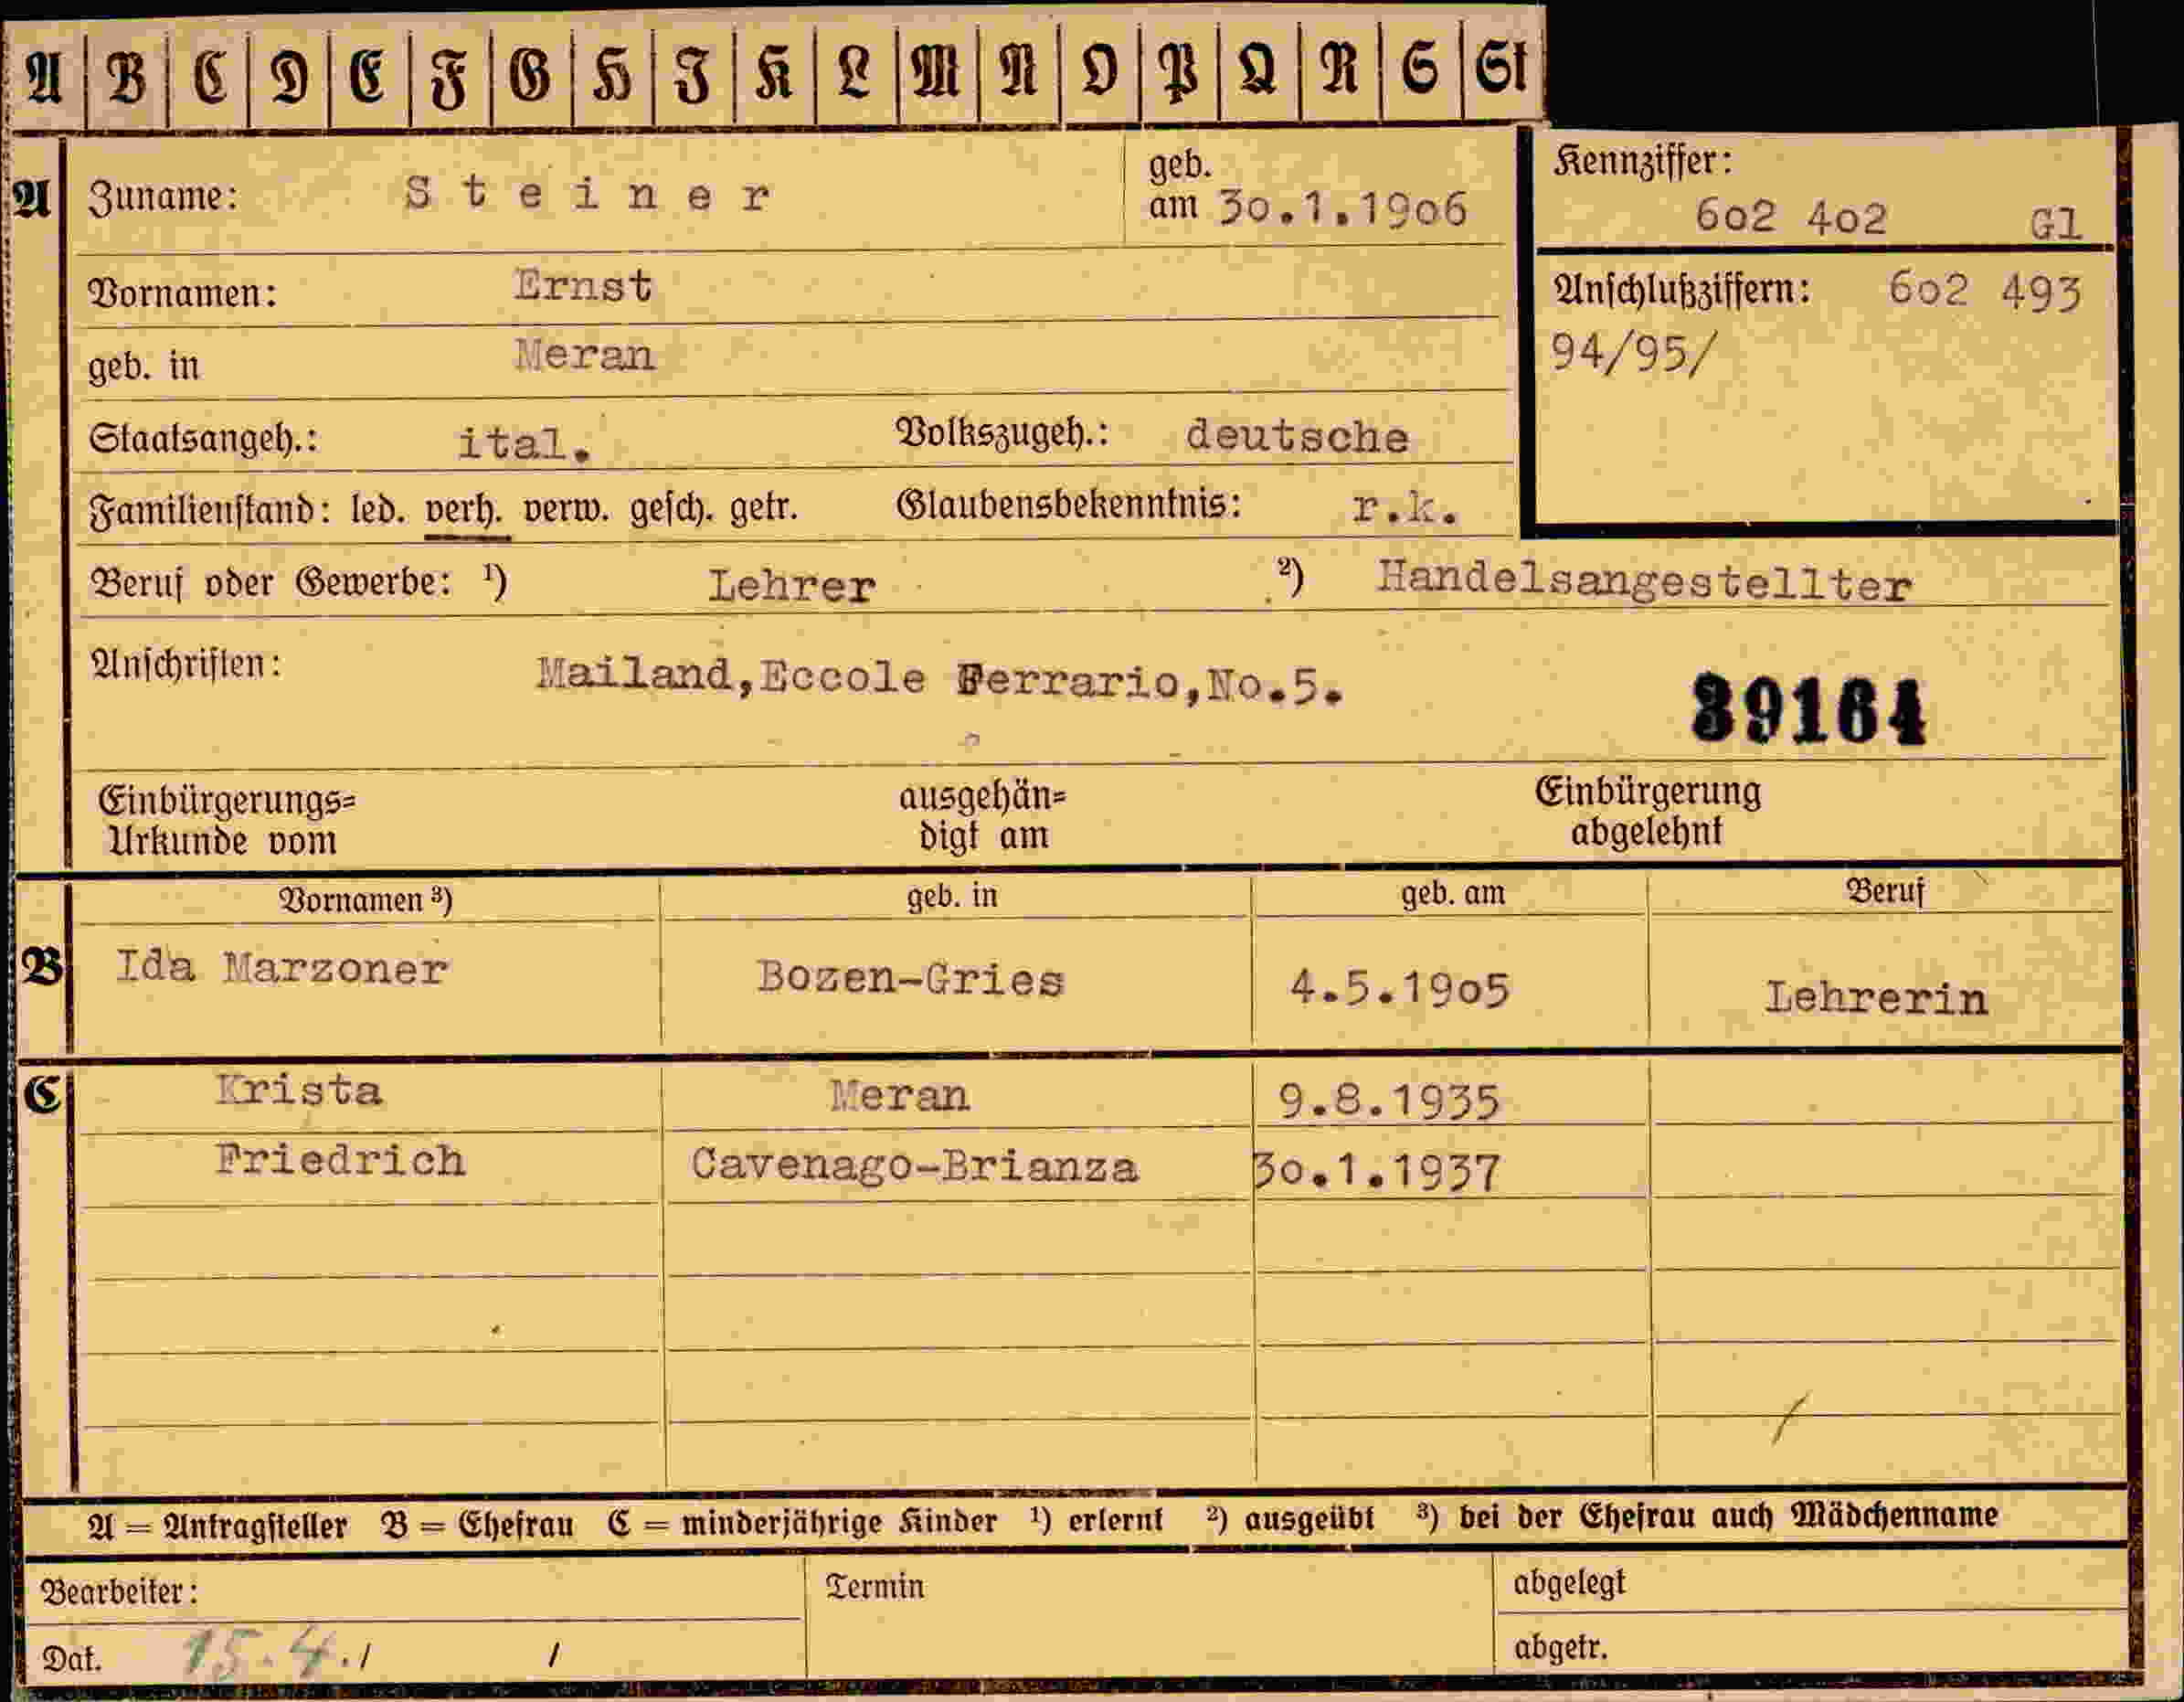 A B C D E F G H I K L M N O P Q R S St
A Zuname: Steiner geb. am 30.1.1906
Kennziffer: 602 402 Gl
Vornamen: Ernst
Anschlußziffern: 602 493
94/95/
geb. in Meran
Staatsangeh.: ital. Volkszugeh.: deutsche
Familienstand: led. verh. verw. gesch. getr. Glaubensbekenntnis: r.k.
Beruf oder Gewerbe: ¹) Lehrer ²) Handelsangestellter
Anschriften: Mailand,Eccole Ferrario,No.5.
39164
Einbürgerungs= ausgehän= Einbürgerung
Urkunde vom digt am abgelehnt
Vornamen ³) geb. in geb. am Beruf
B Ida Marzoner Bozen-Gries 4.5.1905 Lehrerin
C Krista Meran 9.8.1935
Friedrich Cavenago-Brianza 30.1.1937
A = Antragsteller B = Ehefrau C = minderjährige Kinder ¹) erlernt ²) ausgeübt ³) bei der Ehefrau auch Mädchenname
Bearbeiter: Termin abgelegt
Dat. 15.4./ / abgetr.